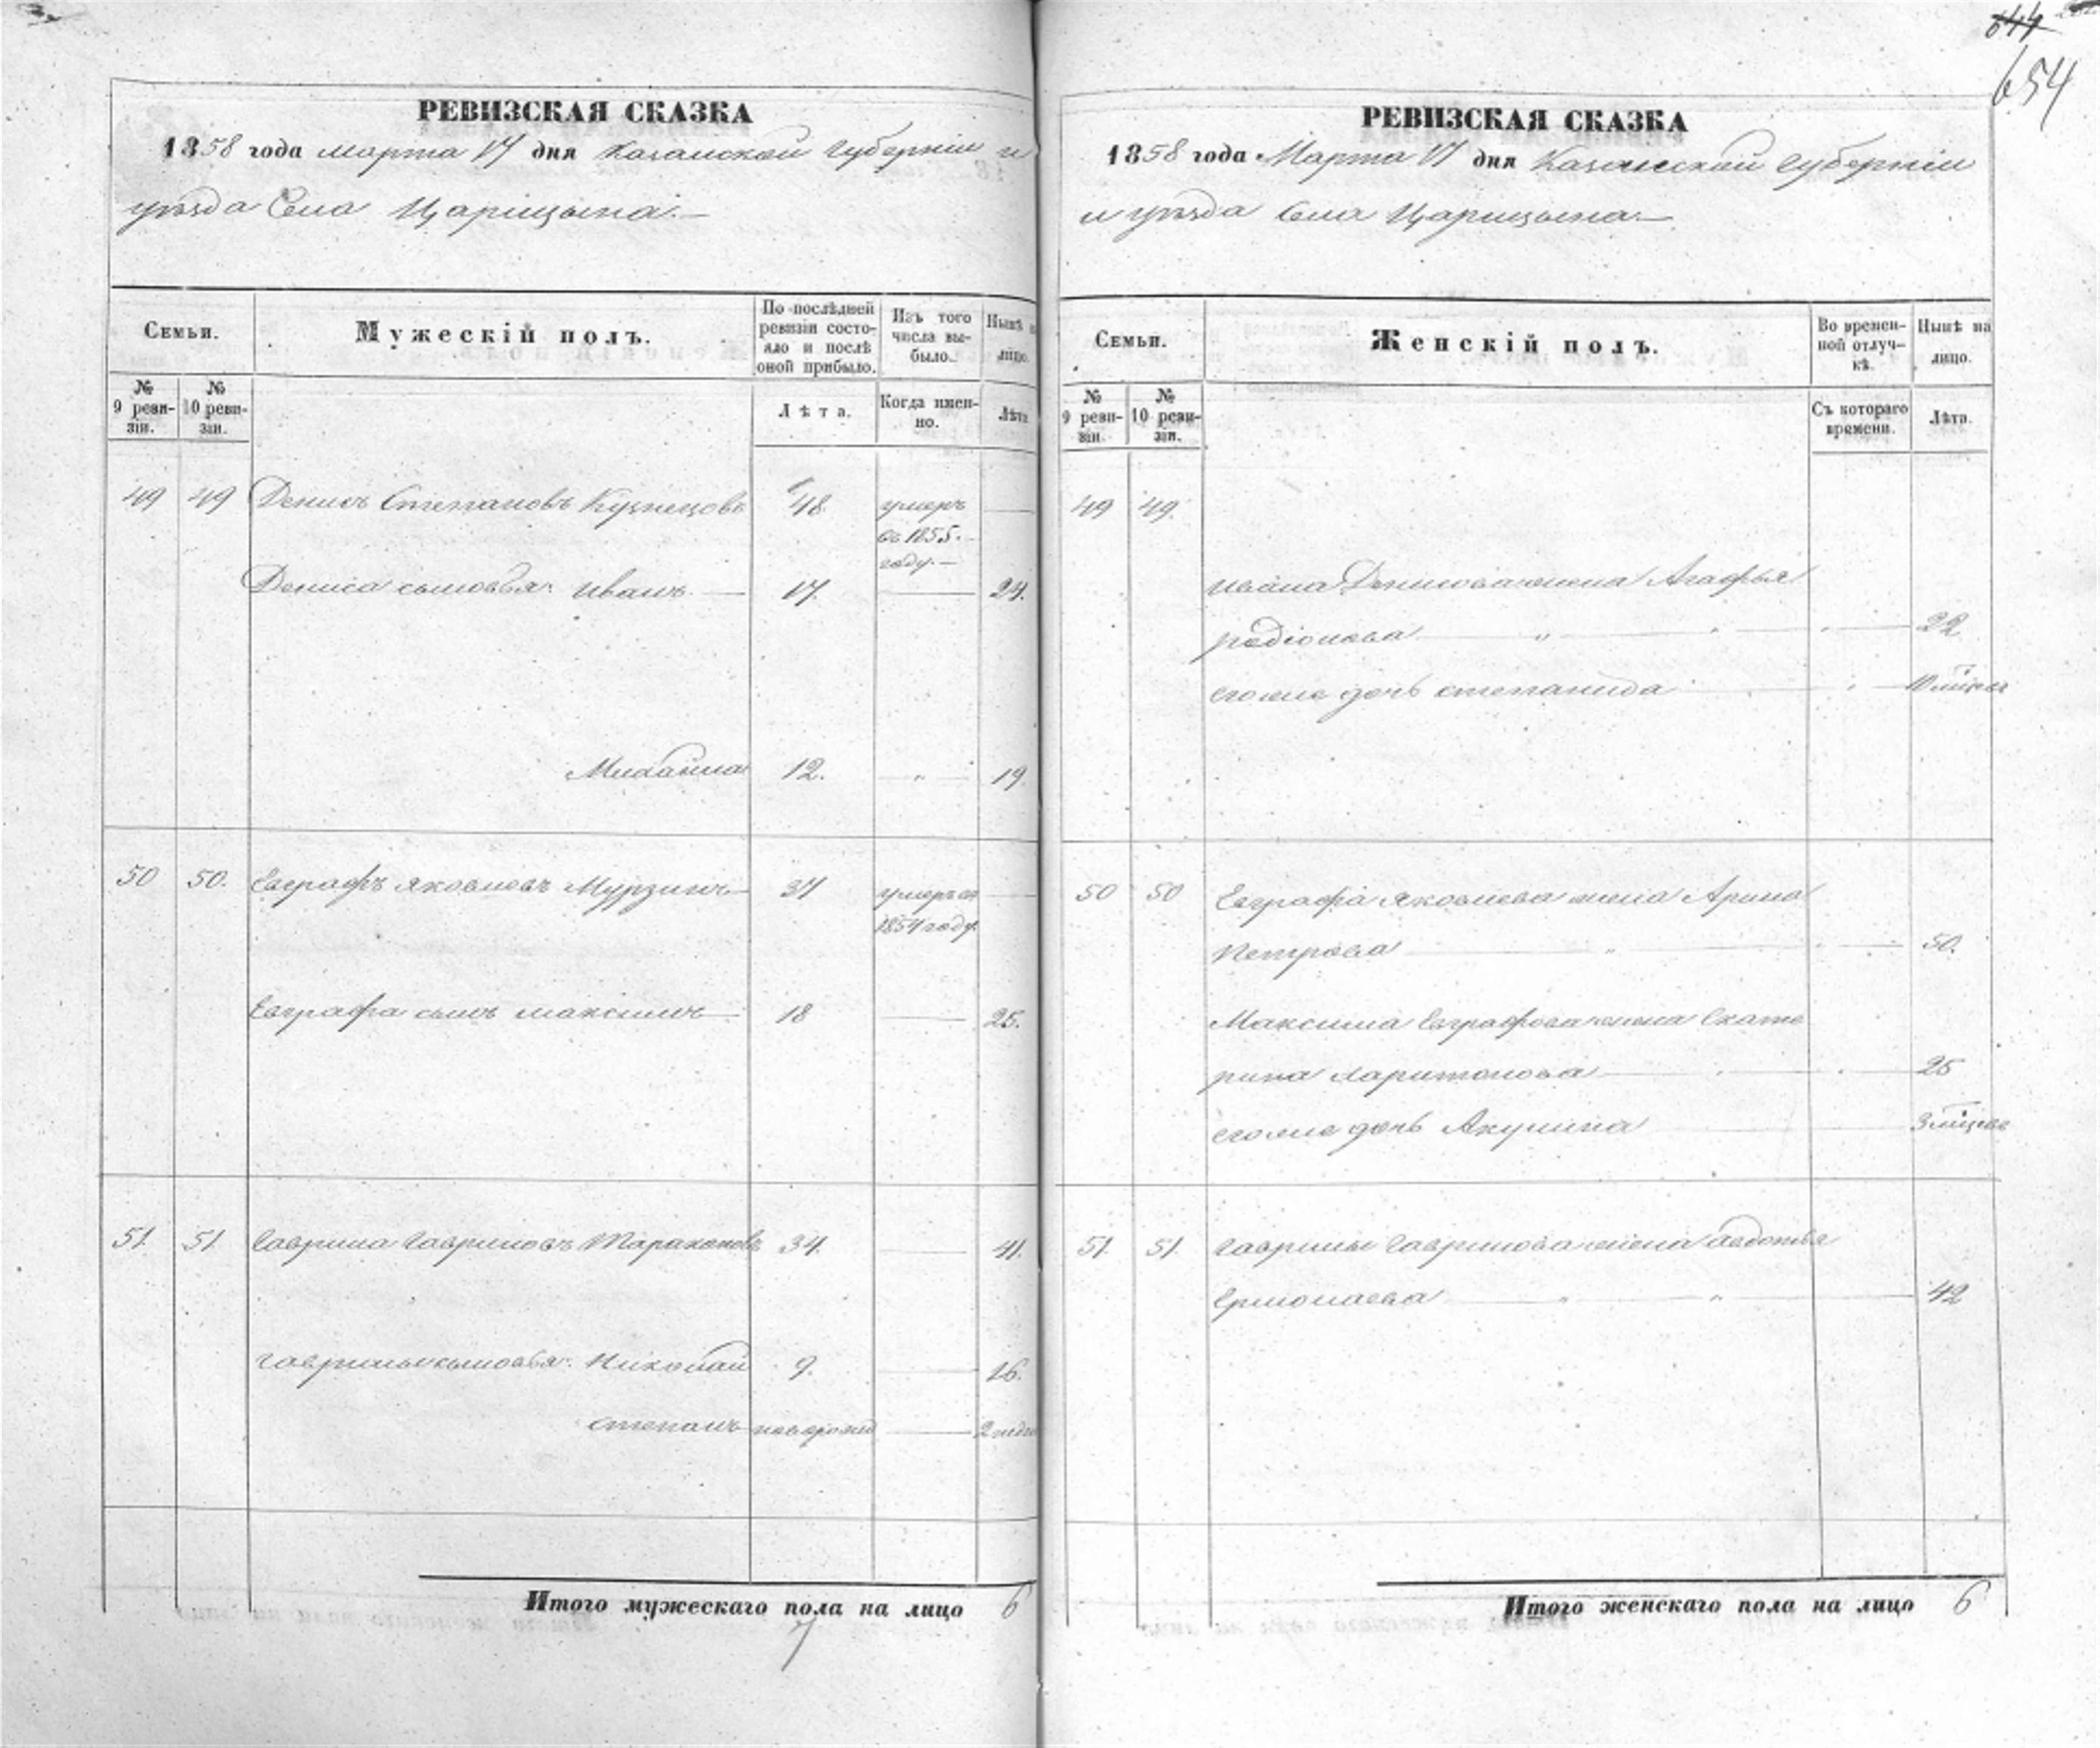 644
654
РЕВИЗСКАЯ СКАЗКА
1858 года марта 17 дня Казанской губерніи и
уѣзда Села Царицына.
Семьи.
Мужескій полъ.
По послѣдней ревизіи состояло и послѣ оной прибыло.
Изъ того числа выбыло.
Нынѣ на лицо.
№ 9 ревизіи.
№ 10 ревизіи.
Лѣта.
Когда именно.
Лѣта
49 49 Денисъ Степановъ Кузнецовъ 48 умеръ
въ 1855.
году.
Дениса сыновья: Иванъ. 17. 24.
Михайла 12. 19.
50 50. Евграфъ Яковлевъ Мурзинъ 37 умеръ въ
1854 году.
Евграфа сынъ Максимъ 18 25.
51. 51 Гаврила Гавриловъ Таракановъ 34. 41.
Гаврилы сыновья: Николай 9. 16.
Степанъ новорожд 2 недѣ
Итого мужескаго пола на лицо 6
7
РЕВИЗСКАЯ СКАЗКА
1858 года Марта 17 дня Казанской губерніи
и уѣзда Села Царицына.
Семьи.
Женскій полъ.
Во временной отлучкѣ.
Нынѣ на лицо.
№ 9 ревизіи.
№ 10 ревизіи.
Съ котораго времени.
Лѣта.
49 49.
Ивана Денисова жена Агафья
Родіонова 22
его же дочь Степанида
50 50 Евграфа Яковлева жена Арина
Петрова 50.
Максима Евграфова жена Екате
рина Харитонова 25
его же дочь Акулина
51. 51. Гаврилы Гаврилова жена Авдотья
Ермолаева 42
Итого женскаго пола на лицо 6